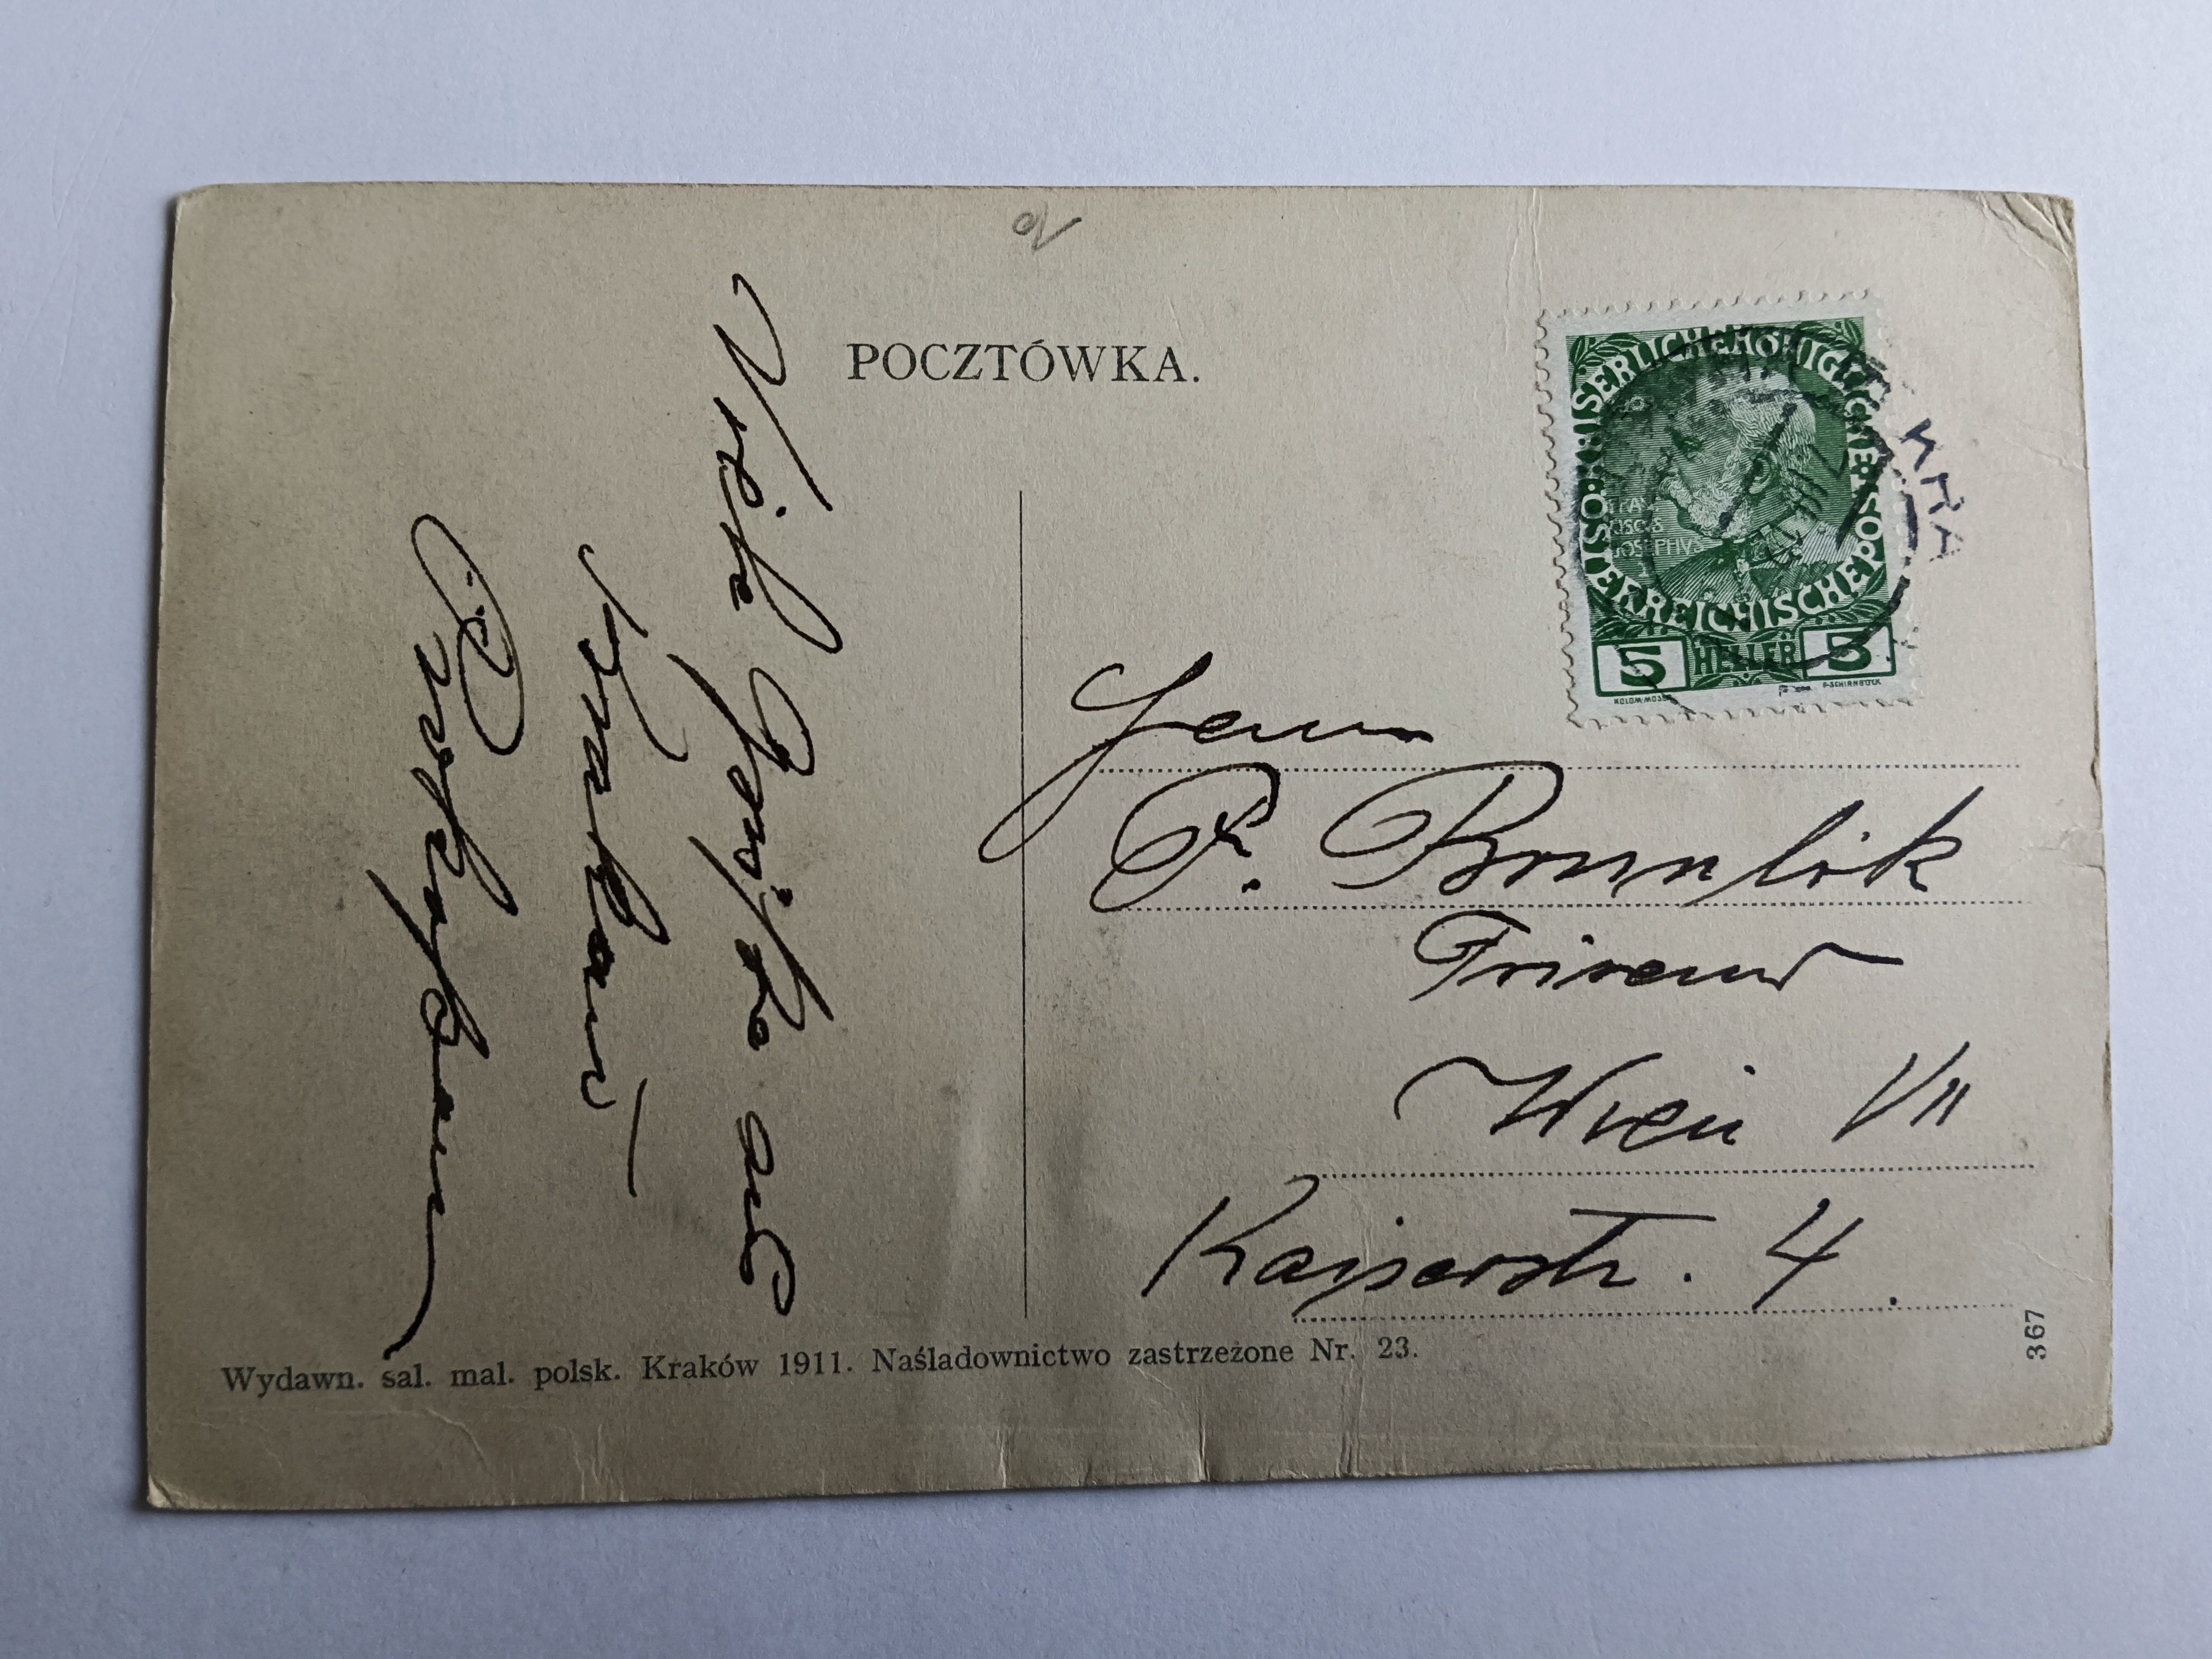 POCZTÓWKA.
Viele Grüße aus
Krakau
KAISERLICHE KÖNIGLICHE
ÖSTERREICHISCHE POST
FRANCISCVS
JOSEPHVS I
5 HELLER 5
KRA
Herrn
P.
Friseur
Wien VII
Kaiserstr. 4.
Wydawn. sal. mal. polsk. Kraków 1911. Naśladownictwo zastrzeżone Nr. 23.
367